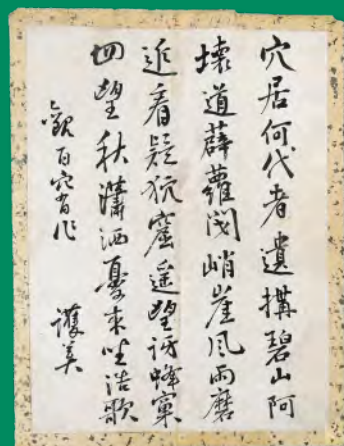 穴居何代者遺搆碧山阿
壊道薜蘿閟峭崖風雨磨
近看疑狖窟遥望訝蜂窠
四望秋瀟洒憂来坐浩歌
觀百穴有作
護美